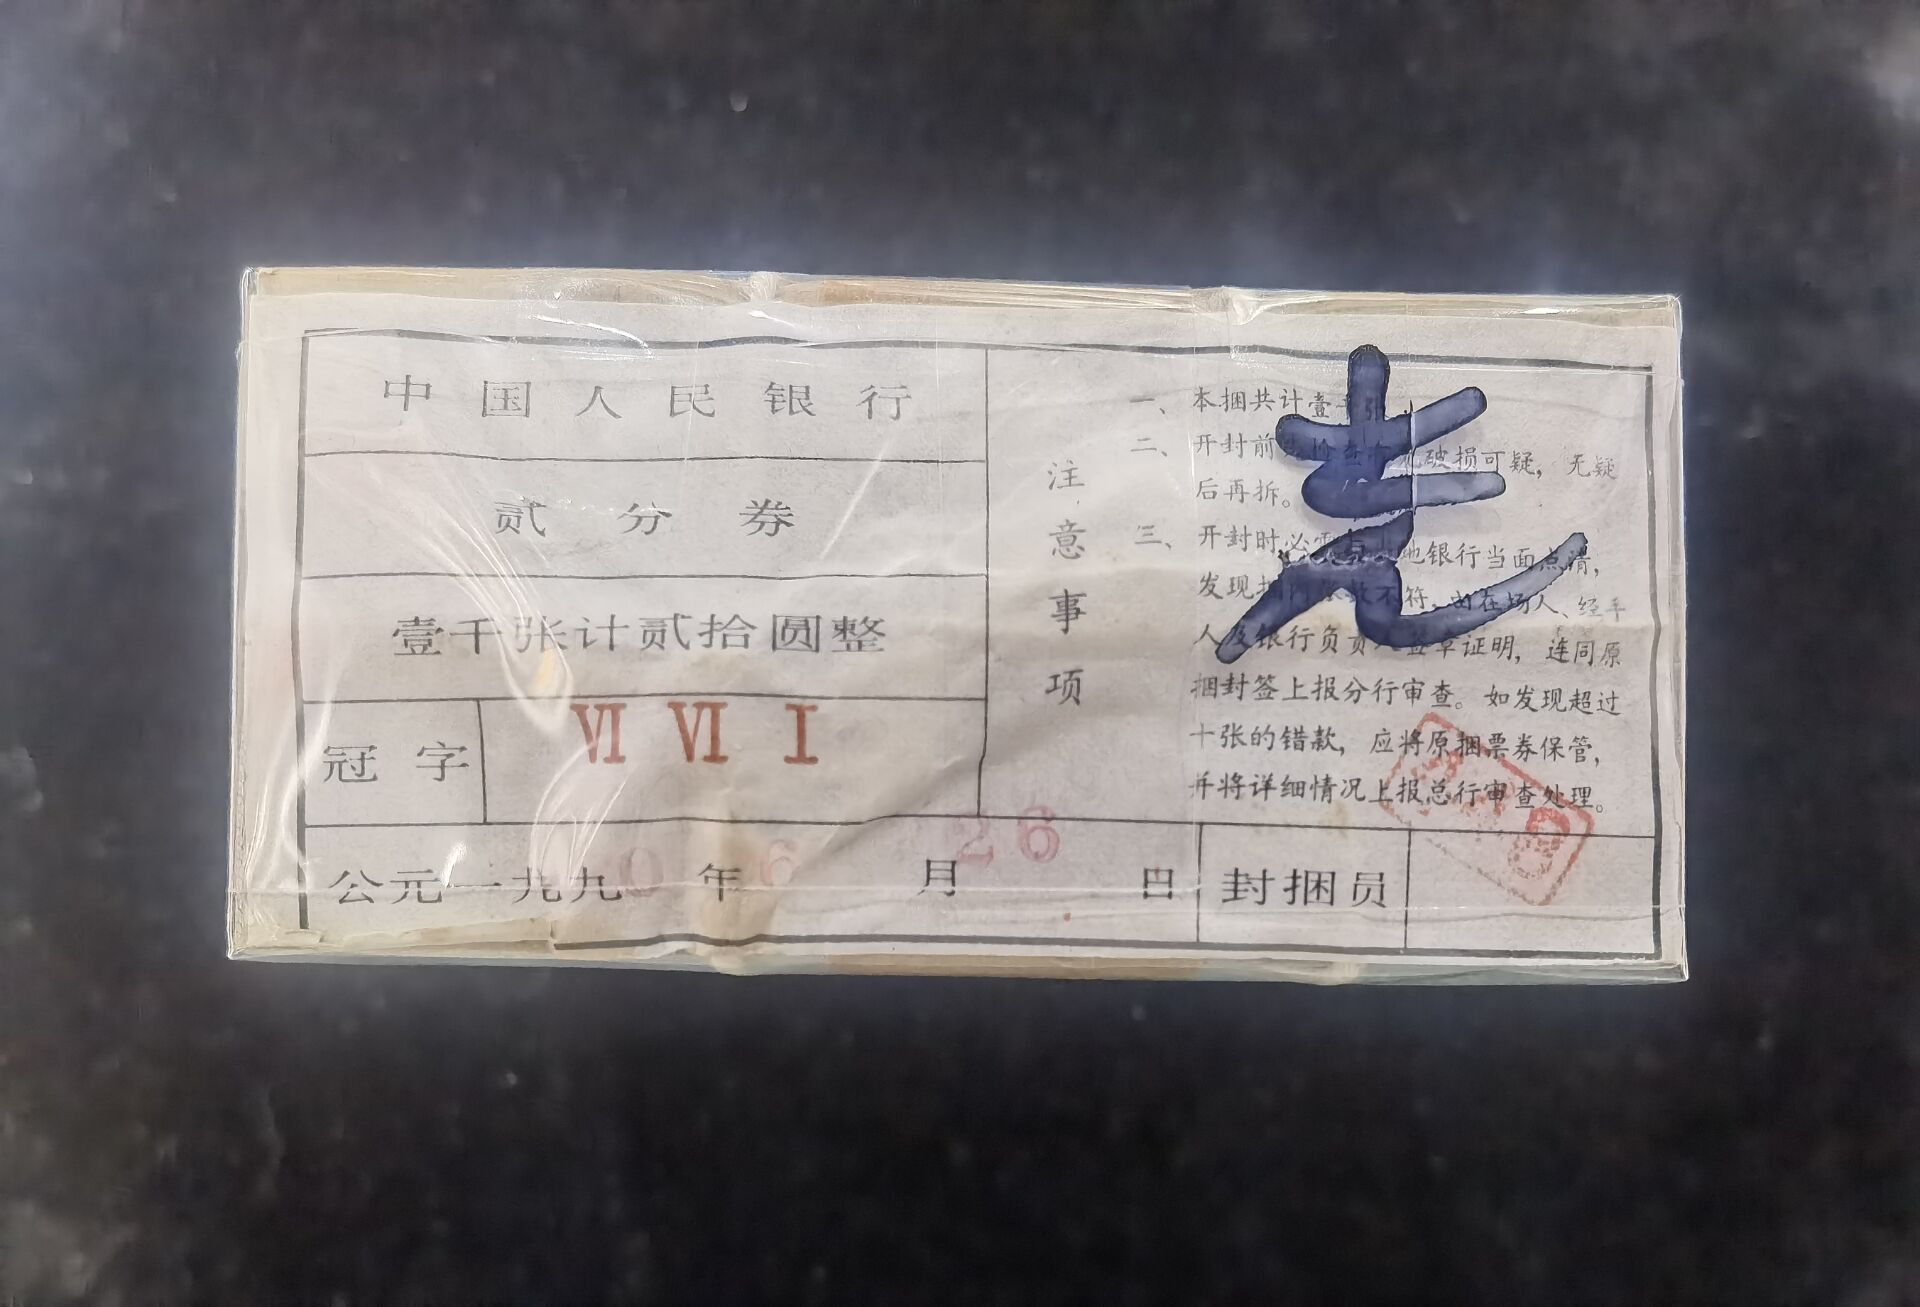 中国人民银行
贰分券
壹千张计贰拾圆整
冠字 Ⅵ Ⅵ Ⅰ
公元一九九0年6月26日 封捆员
注意事项
一、本捆共计壹千张
二、开封前 检查 破损可疑，无疑
后再拆。
三、开封时必需 地银行当面点清，
发现捆内张数不符，由在场人、经手
人及银行负责人签章证明，连同原
捆封签上报分行审查。如发现超过
十张的错款，应将原捆票券保管，
并将详细情况上报总行审查处理。